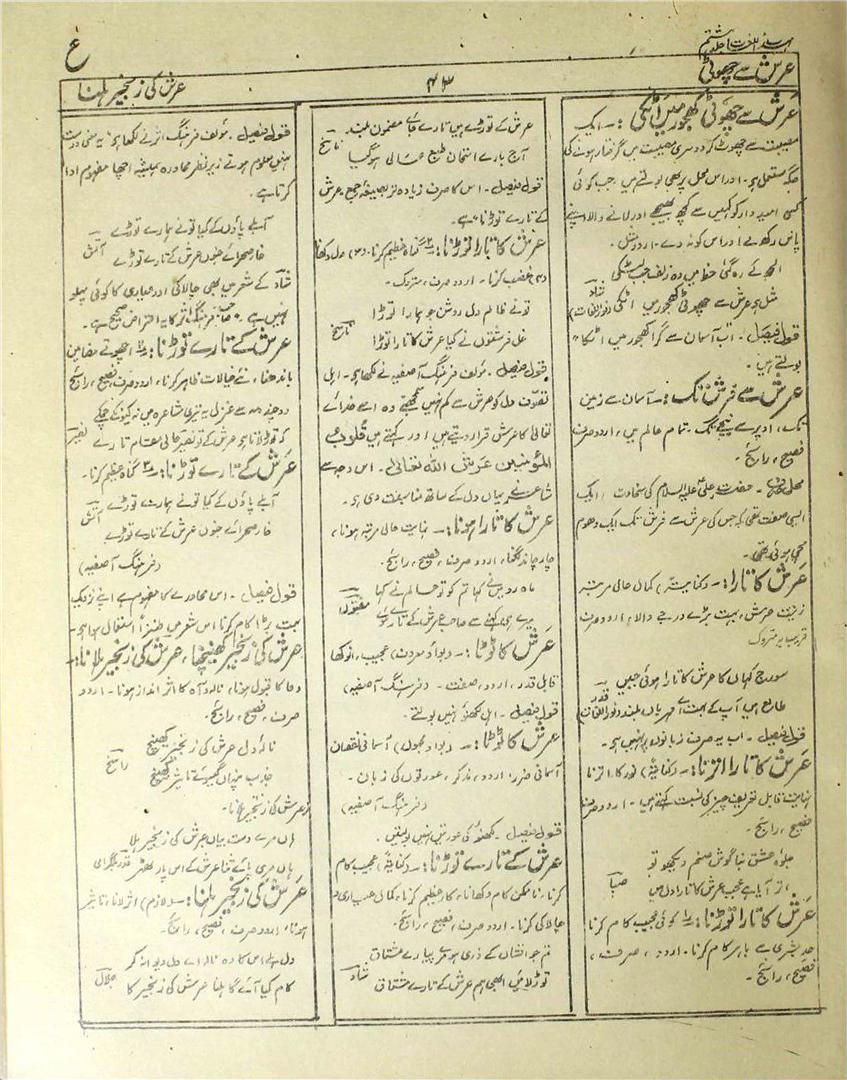 مہذب اللغات جلد ہشتم
ع
عرش سے چھوٹی
۴۳
عرش کی زنجیر ہلنا
عرش سے چھوٹی کھجور میں اٹکی :۔ ایک
مصیبت سے چھوٹ کر دوسری مصیبت میں گرفتار ہونے کی
جگہ مستعمل ہے۔ اور اس محل پر بھی بولتے ہیں جب کوئی
کسی امیدوار کو کہیں سے کچھ بھیجے اور لانے والا اپنے
پاس رکھ لے اور اس کو نہ دے۔ اردو مثل۔
الجھ کے رہ گئی خط میں وہ زلف جب لٹکی
شاد
مثل ہے عرش سے چھوٹی کھجور میں اٹکی (نور اللغات)
قول فیصل۔ اب آسمان سے گرا کھجور میں اٹکا
بولتے ہیں۔
عرش سے فرش تک :۔ آسمان سے زمین
تک، اوپر سے نیچے تک۔ تمام عالم میں، اردو صرف
فصیح، رائج۔
محل صرف۔ حضرت علی علیہ السلام کی سخاوت ایک
ایسی صفت تھی کہ جس کی عرش سے فرش تک ایک دھوم
مچی ہوئی تھی۔
عرش کا تارا :۔ (کنایتہً) کمال عالی مرتبہ
زینت عرش، بہت بڑے درجے والا، اردو صرف
قریب بہ متروک
سورج کہاں کا عرش کا تارا ہوئی جبیں
قدر
طالع ہیں آپ کے بہت اے مہرباں بلند (نور اللغات)
قول فیصل۔ اب یہ صرف زبانوں پر نہیں ہے۔
عرش کا تارا اترنا :۔ (کنایتہً) نور کا اترنا
نہایت قابل تعریف چیز کی نسبت کہتے ہیں۔ اردو صرف
فصیح، رائج۔
جلوۂ عشق بناگوش صنم دیکھو تو
صبا
اتر آیا ہے عجب عرش کا تارا دل میں
عرش کا تارا توڑنا :۔ (۱) کوئی عجیب کام کرنا
حد بشری سے باہر کام کرنا۔ اردو، صرف،
فصیح، رائج۔
عرش کے توڑے ہیں تارے جائے مضمون بلند
ناسخ
آج بارے امتحان طبع عالی ہو گیا
قول فیصل۔ اس کا صرف زیادہ تر بصیغۂ جمع عرش
کے تارے توڑنا ہے۔
عرش کا تارا توڑنا :۔ (۲) گناہ عظیم کرنا۔ (۳) دل دکھانا
(۴) غضب کرنا۔ اردو صرف، متروک۔
تو نے ظالم دل روشن جو ہمارا توڑا
ناسخ
غل فرشتوں نے کیا عرش کا تارا توڑا
قول فیصل۔ مؤلف فرہنگ آصفیہ نے لکھا ہے۔ اہل
تصوف دل کو عرش سے کم نہیں سمجھتے وہ اسے خدائے
تعالیٰ کا عرش قرار دیتے ہیں اور کہتے ہیں قلوب
المؤمنین عرش اللہ تعالیٰ۔ اس وجہ سے
شاعر نے یہاں دل کے ساتھ مناسبت دی ہے۔
عرش کا تارا ہونا :۔ نہایت عالی مرتبہ ہونا،
چار چاند لگنا، اردو صرف، فصیح، رائج۔
ماہ رو میں نے کہا تم کو تو عالم نے کہا
میرے ہی کہنے سے صاحب عرش کے تارے ہوئے
عرش کا ٹوٹا :۔ (بواؤ معروف) عجیب، انوکھا
قابل قدر، اردو، صفت۔ (فرہنگ آصفیہ)
قول فیصل۔ اہل لکھنؤ نہیں بولتے۔
عرش کا ٹوٹا :۔ (بواؤ مجہول) آسمانی نقصان
آسمانی ضرر، اردو، مذکر، عورتوں کی زبان۔
(فرہنگ آصفیہ)
قول فیصل۔ لکھنؤ کی عورتیں نہیں بولتیں۔
عرش کے تارے توڑنا :۔ (کنایتہً) عجیب کام
کرنا، نا ممکن کام دکھانا، کار عظیم کرنا، کمال عیاری و
چالاکی کرنا۔ اردو صرف، فصیح، رائج۔
تم جو افشاں کے ذری ہو مرے پیارے مشتاق
شاد
توڑ لائیں ابھی ہم عرش کے تارے مشتاق
قول فیصل۔ مؤلف فرہنگ اثر نے لکھا ہے یہ معنی درست
نہیں معلوم ہوتے زیر نظر محاورہ ہمیشہ اچھا مفہوم ادا
کرتا ہے۔
آبلے پاؤں کے کیا تو نے ہمارے توڑے
آتش
خار صحرائے جنوں عرش کے تارے توڑے
شاد کے شعر میں بھی چالاکی اور عیاری کا کوئی پہلو
نہیں ہے۔ صاحب فرہنگ اثر کا یہ اعتراض صحیح ہے۔
عرش کے تارے توڑنا :۔ (۲) اچھوتے مضامین
باندھنا، نئے خیالات ظاہر کرنا، اردو صرف، فصیح، رائج
دوچند مہ سے غزل ہے تیری مشاعرہ میں نہ کیونکے چمکے
نصیر
کہ توڑ لاتا ہے عرش کے تو نصیر عالی مقام تارے
عرش کے تارے توڑنا :۔ (۳) گناہ عظیم کرنا۔
آبلے پاؤں کے کیا تو نے ہمارے توڑے
آتش
خار صحرائے جنوں عرش کے تارے توڑے
(فرہنگ آصفیہ)
قول فیصل۔ اس محاورے کا مفہوم ہے اپنے نزدیک
بہت بڑا کام کرنا اس شعر میں طنزاً استعمال ہوا ہے۔
عرش کی زنجیر کھینچنا، عرش کی زنجیر ہلانا :۔
دعا کا قبول ہونا، نالہ و آہ کا اثر انداز ہونا۔ اردو
صرف، فصیح، رائج۔
نالۂ دل عرش کی زنجیر کھینچ
راسخ
جذب پنہاں گیسوئے تاثیر کھینچ
(عرش کی زنجیر ہلانا)۔
ہاں مرے دست بیاں عرش کی زنجیر ہلا
قدر بلگرامی
ہاں مری پائے ثنا عرش کے اس پار ٹھہر
عرش کی زنجیر ہلنا :۔ (لازم) اثر لانا، تاثیر
ہونا، اردو صرف، فصیح، رائج۔
دل ہلے اس کا وہ نالہ اے دل دیوانہ کر
جلال
کام کیا آئے گا ہلنا عرش کی زنجیر کا